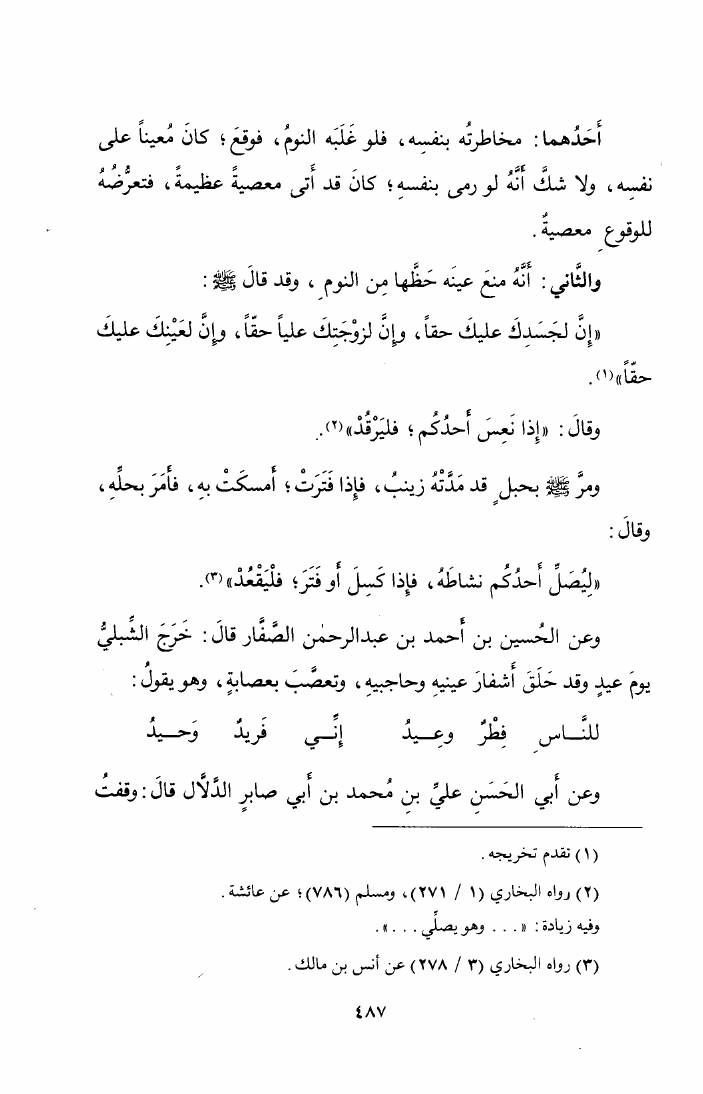 أَحَدُهما: مخاطرتُه بنفسِه، فلو غَلَبَه النومُ، فوقعَ؛ كانَ مُعيناً على
نفسِه، ولا شكَّ أَنَّهُ لو رمى بنفسهِ؛ كانَ قد أَتى معصيةً عظيمةً، فتعرُّضُهُ
للوقوعِ معصيةٌ.
والثَّاني: أَنَّهُ منعَ عينَه حَظَّها مِن النومِ، وقد قالَ ﷺ:
«إِنَّ لجَسَدِكَ عليكَ حقاً، وإِنَّ لزوْجَتِكَ علياً حقّاً، وإِنَّ لعَيْنِكَ عليكَ
حقّاً»(١).
وقالَ: «إِذا نَعِسَ أَحدُكُم؛ فليَرْقُدْ»(٢).
ومرَّ ﷺ بحبلٍ قد مَدَّتْهُ زينبُ، فإِذا فَتَرَتْ؛ أَمسكَتْ بهِ، فأَمَرَ بحلِّهِ،
وقالَ:
«لِيُصَلِّ أَحدُكُم نشاطَهُ، فإِذا كَسِلَ أَو فَتَرَ؛ فلْيَقْعُدْ»(٣).
وعن الحُسين بن أَحمد بن عبدالرحمٰن الصَّفَّار قالَ: خَرَجَ الشِّبليُّ
يومَ عيدٍ وقد حَلَقَ أَشفارَ عينيهِ وحاجبيهِ، وتعصَّبَ بعصابةٍ، وهو يقولُ:
للنَّــاسِ فِطْرٌ وعِــيدُ إِنِّــي فَريدٌ وَحــيدُ
وعن أَبي الحَسَنِ عليِّ بنِ مُحمد بن أَبي صابرٍ الدَّلَّال قالَ: وقفتُ
(١) تقدم تخريجه.
(٢) رواه البخاري (١ / ٢٧١)، ومسلم (٧٨٦)؛ عن عائشة.
وفيه زيادة: «... وهو يصلِّي ...».
(٣) رواه البخاري (٣ / ٢٧٨) عن أنس بن مالك.
٤٨٧